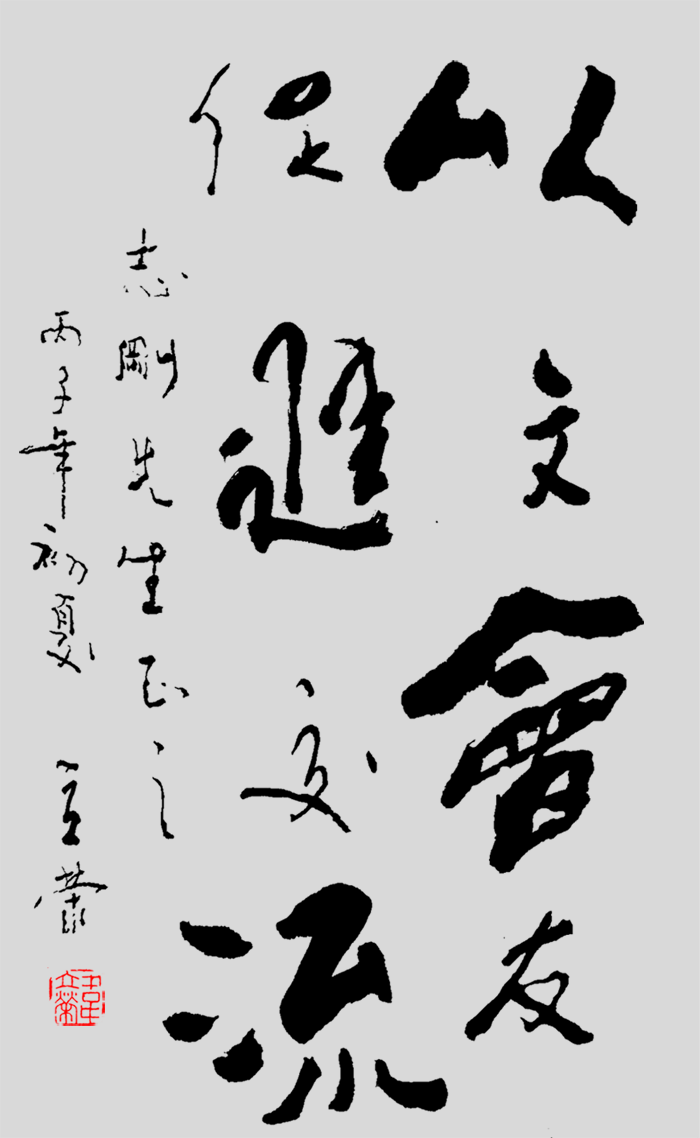 以文會友
促進交流
志剛先生正之
丙子年初夏 立榮